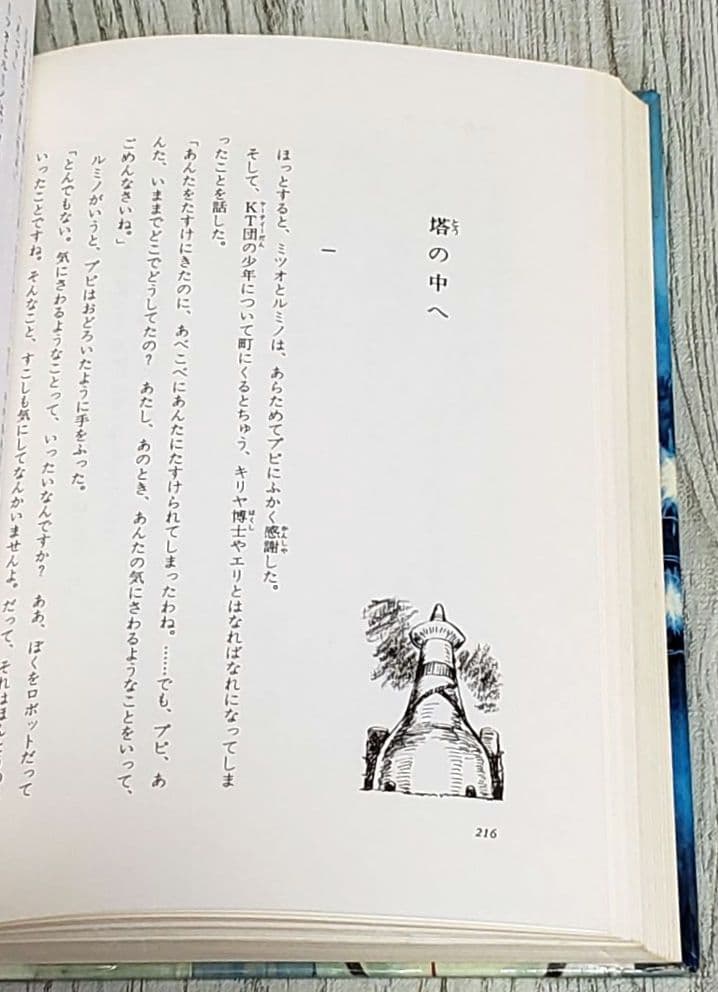 塔の中へ
とう
一
ほっとすると、ミツオとルミノは、あらためてプピにふかく感謝した。
かんしゃ
そして、KT団の少年について町にくるとちゅう、キリヤ博士やエリとはなればなれになってしま
ケーティーだん
はくし
ったことを話した。
「あんたをたすけにきたのに、あべこべにあんたにたすけられてしまったわね。……でも、プピ、あ
んた、いままでどこでどうしてたの？　あたし、あのとき、あんたの気にさわるようなことをいって、
ごめんなさいね。」
ルミノがいうと、プピはおどろいたように手をふった。
「とんでもない。気にさわるようなことって、いったいなんですか？　ああ、ぼくをロボットだって
いったことですね。そんなこと、すこしも気にしてなんかいませんよ。だって、それはほんとうの
216